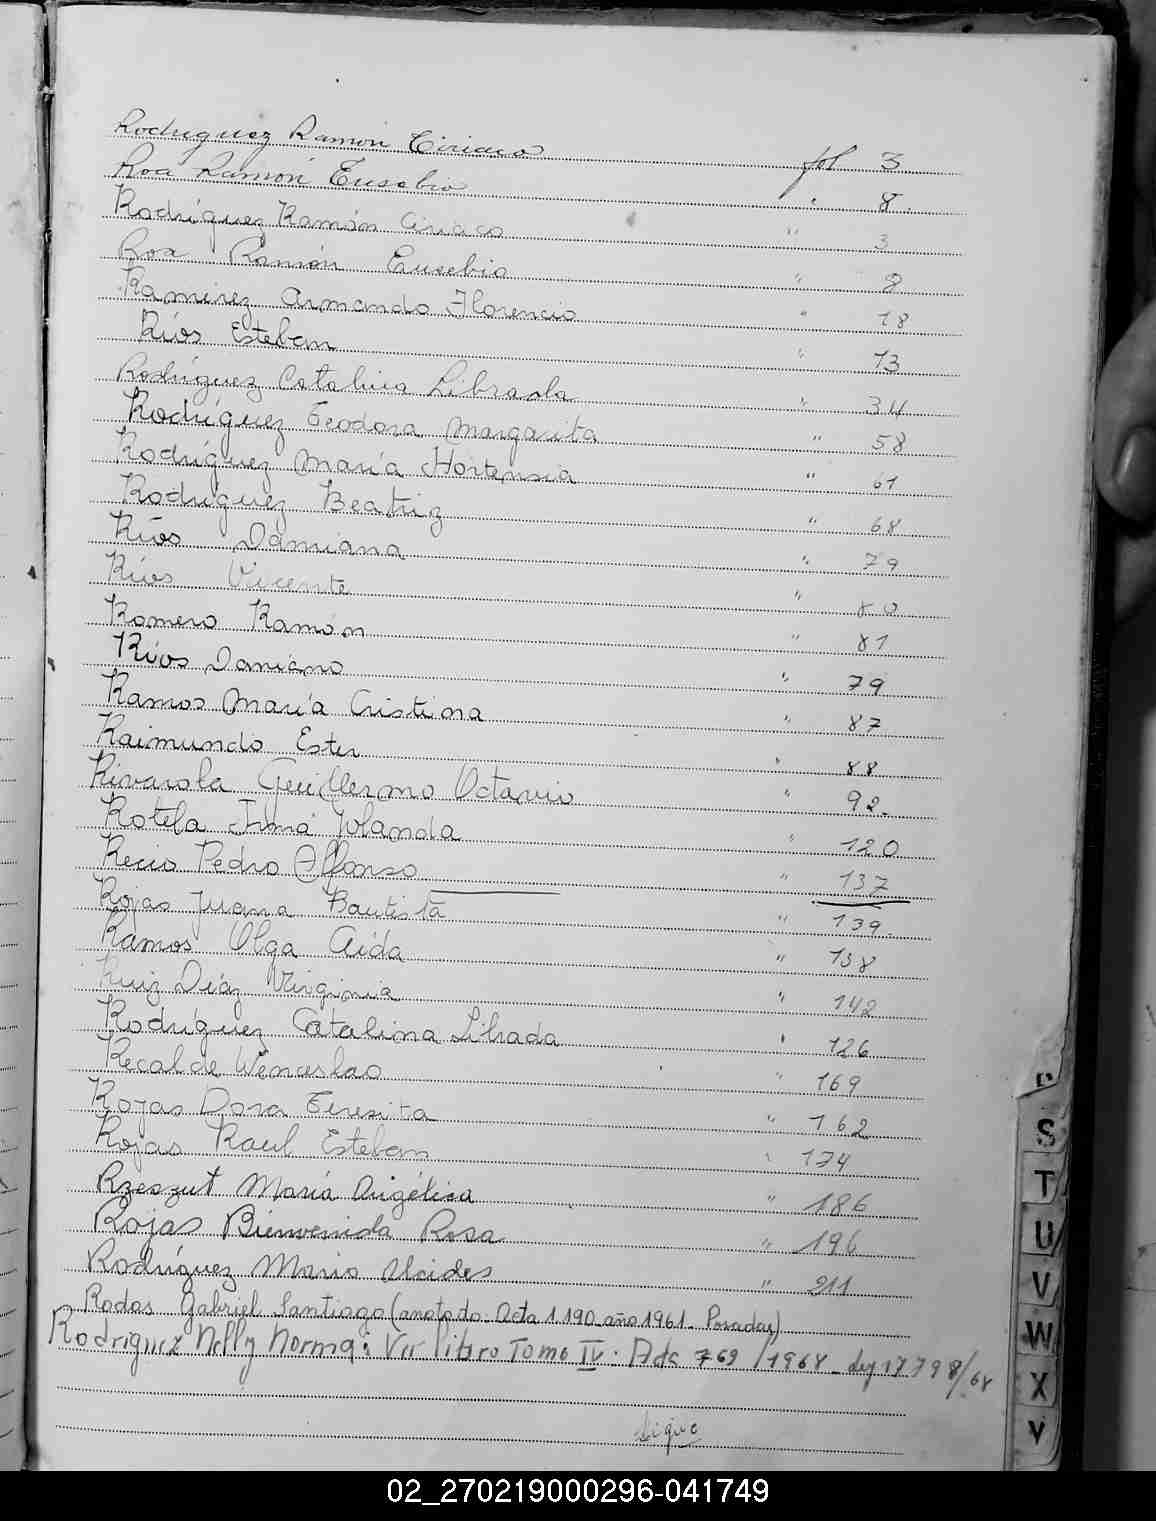 Rodriguez Ramón Ciriaco fol 3
Roa Ramón Eusebio " 8.
Rodríguez Ramón Ciriaco " 3
Roa Ramón Eusebio " 8
Ramírez Armando Florencio " 18
Ríos Esteban " 13
Rodríguez Catalina Librada " 34
Rodríguez Teodora Margarita " 58
Rodríguez María Hortensia " 61
Rodriguez Beatriz " 68
Ríos Damiana " 79
Ríos Vicente " 80
Romero Ramón " 81
Ríos Damiana " 79
Ramos María Cristina " 87
Raimundo Ester " 88
Rivarola Guillermo Octavio " 92.
Rotela Irma Yolanda " 120
Recio Pedro Alfonso " 137
Rojas Juana Bautista " 139.
Ramos Olga Aída " 138
Ruiz Diáz Virginia " 142
Rodríguez Catalina Librada " 126
Recalde Wenceslao " 169
Rojas Dora Teresita " 162
Rojas Raul Esteban " 174
Rzeszut María Angélica " 186
Rojas Bienvenida Rosa " 196
Rodríguez Mario Alcides " 211
Rodas Gabriel Santiago (anotado Acta 1190 año 1961 Posadas)
Rodriguez Nelly Norma: Ver libro Tomo IV. Acta 769/1968 - ley 17.798/68
Sigue
S
T
U
V
W
X
Y
02_270219000296-041749